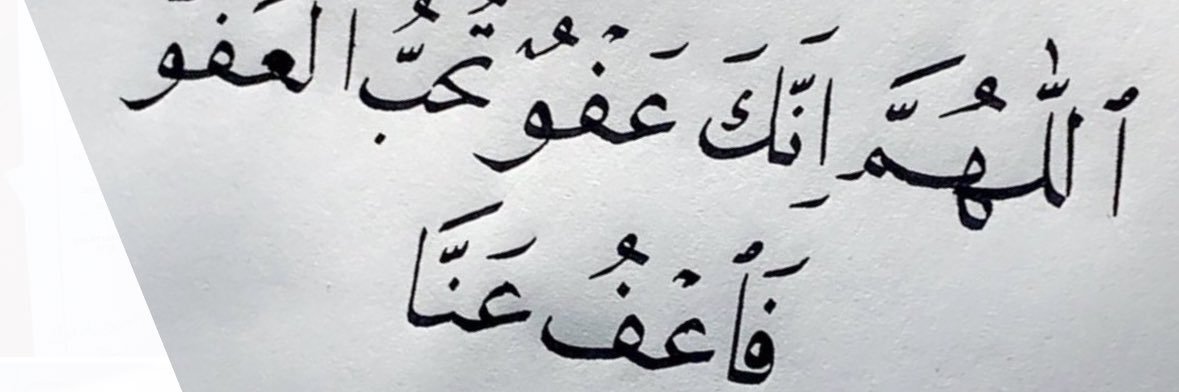 ٱللّٰهُمَّ اِنَّكَ عَفُوٌّ تُحِبُّ الْعَفْوَ
فَٱعْفُ عَنَّا